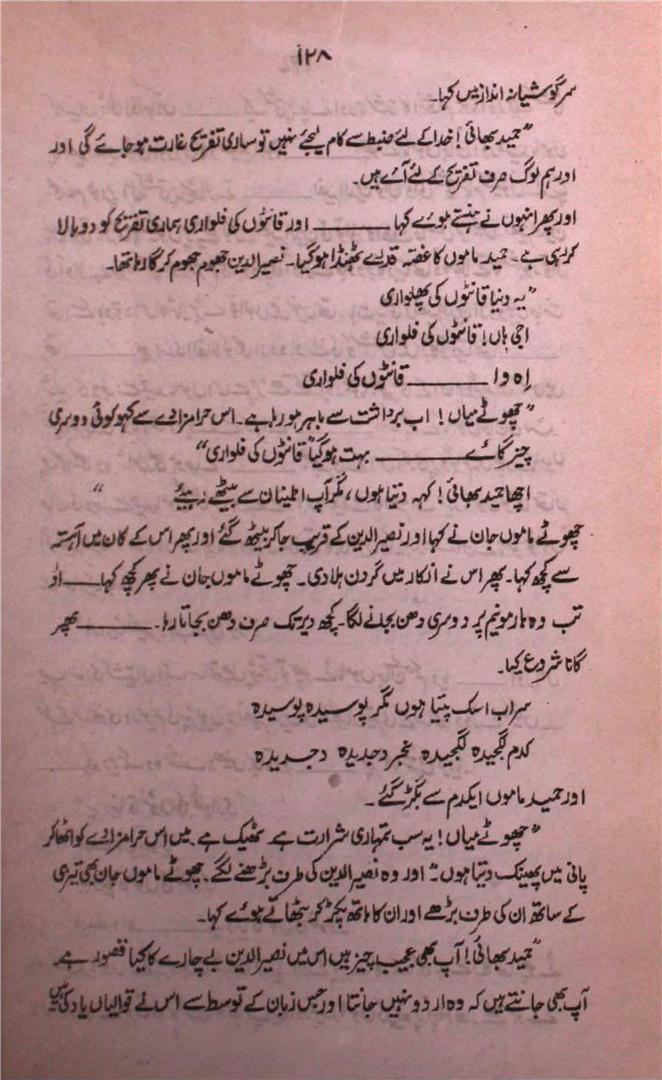 ۱۲۸
سرگوشیانہ انداز میں کہا۔
”حمید بھائی! خدا کے لئے ضبط سے کام لیجئے نہیں تو ساری تفریح غارت ہو جائے گی اور
اور ہم لوگ صرف تفریح کے لئے آئے ہیں۔
اور پھر انہوں نے ہنستے ہوئے کہا ——— اور قانٹوں کی فلواری ہماری تفریح کو دوبالا
کر رہی ہے۔ حمید ماموں کا غصّہ قدرے ٹھنڈا ہو گیا۔ نصیرالدین جھوم جھوم کر گا رہا تھا۔
”یہ دنیا قانٹوں کی پھلواری
اجی ہاں! قانٹوں کی فلواری
اِہ وا ——— قانٹوں کی فلواری
”چھوٹے میاں! اب برداشت سے باہر ہو رہا ہے۔ اس حرامزادے سے کہو کوئی دوسری
چیز گائے ——— بہت ہو گیا قانٹوں کی فلواری“
اچھا حمید بھائی! کہہ دیتا ہوں، مگر آپ اطمینان سے بیٹھے رہیئے “
چھوٹے ماموں جان نے کہا اور نصیرالدین کے قریب جا کر بیٹھ گئے اور پھر اس کے کان میں آہستہ
سے کچھ کہا۔ پھر اس نے انکار میں گردن ہلا دی۔ چھوٹے ماموں جان نے پھر کچھ کہا —— اور
تب وہ ہارمونیم پر دوسری دھن بجانے لگا۔ کچھ دیر تک صرف دھن بجاتا رہا۔ ——— پھر
گانا شروع کیا۔
سراب اسک پیتا ہوں مگر پوسیدہ پوسیدہ
کدم لگجیدہ لگجیدہ نجر دجدیدہ دجدیدہ
اور حمید ماموں ایکدم سے بگڑ گئے۔
”چھوٹے میاں! یہ سب تمہاری شرارت ہے۔ ٹھیک ہے۔ میں اس حرامزادے کو اٹھا کر
پانی میں پھینک دیتا ہوں“ اور وہ نصیرالدین کی طرف بڑھنے لگے۔ چھوٹے ماموں جان بھی تیزی
کے ساتھ ان کی طرف بڑھے اور ان کا ہاتھ پکڑ کر بٹھاتے ہوئے کہا۔
”حمید بھائی! آپ بھی عجیب چیز ہیں اس میں نصیرالدین بے چارے کا کیا قصور ہے۔
آپ بھی جانتے ہیں کہ وہ اردو نہیں جانتا اور جس زبان کے توسط سے اس نے قوالیاں یاد کی ہیں